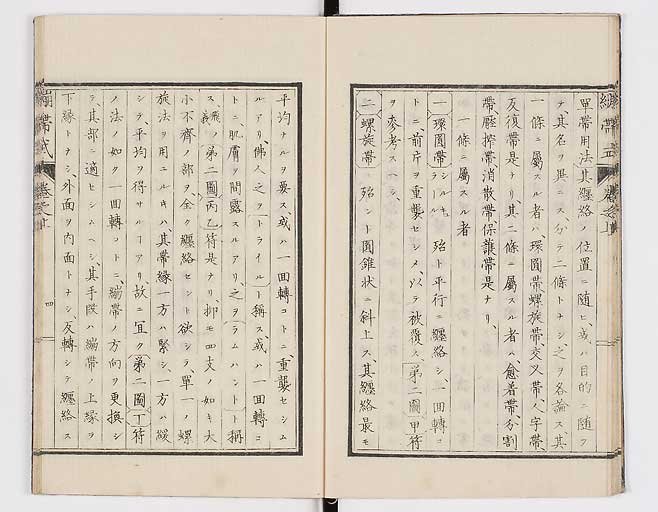 繃帶式 卷之上
單帶用法其纏絡ノ位置ニ隨ヒ、或ハ目的ニ隨フ
テ其名ヲ異ニス、分テ二條トナシ、之ヲ各論ス、其
一條ニ屬スル者ハ、環圓帶、螺旋帶、交叉帶、人字帶、
反復帶是ナリ、其二條ニ屬スル者ハ、愈着帶、分割
帶、壓搾帶、消散帶、保護帶是ナリ、
一條ニ屬スル者
一環圓帶 シルキュラール 殆ト平行ニ纏絡シ、一回轉コ
トニ、前片ヲ重襲セシメ、以テ被覆ス、第二圖甲符
ヲ參考スヘシ、
二螺旋帶 殆ント圓錐状ニ斜上ス、其纏絡最モ
平均ナルヲ要ス、或ハ一回轉コトニ、重襲セシム
ルアリ、佛人之ヲトライルト稱ス、或ハ一回轉コ
トニ肌膚ヲ間露スルアリ、之ヲラムハントト稱
ス、第二圖丙乙符是ナリ、抑モ四支ノ如キ大
小不齊ノ部ヲ、全ク纏絡セント欲シ、單一ノ螺
旋法ヲ用ユルキハ、其帶縁一方ハ緊シ、一方ハ緩
シテ、平均ヲ得サルコアリ、故ニ宜ク第二圖丁符
ノ法ノ如ク一回轉コトニ、繃帶ノ方向ヲ更換シ
テ、其部ニ適セシムヘシ、其手段ハ繃帶ノ上縁ヲ
下縁トナシ、外面ヲ内面トナシ、反轉シテ纏絡ス
繃帶式 卷之上 四